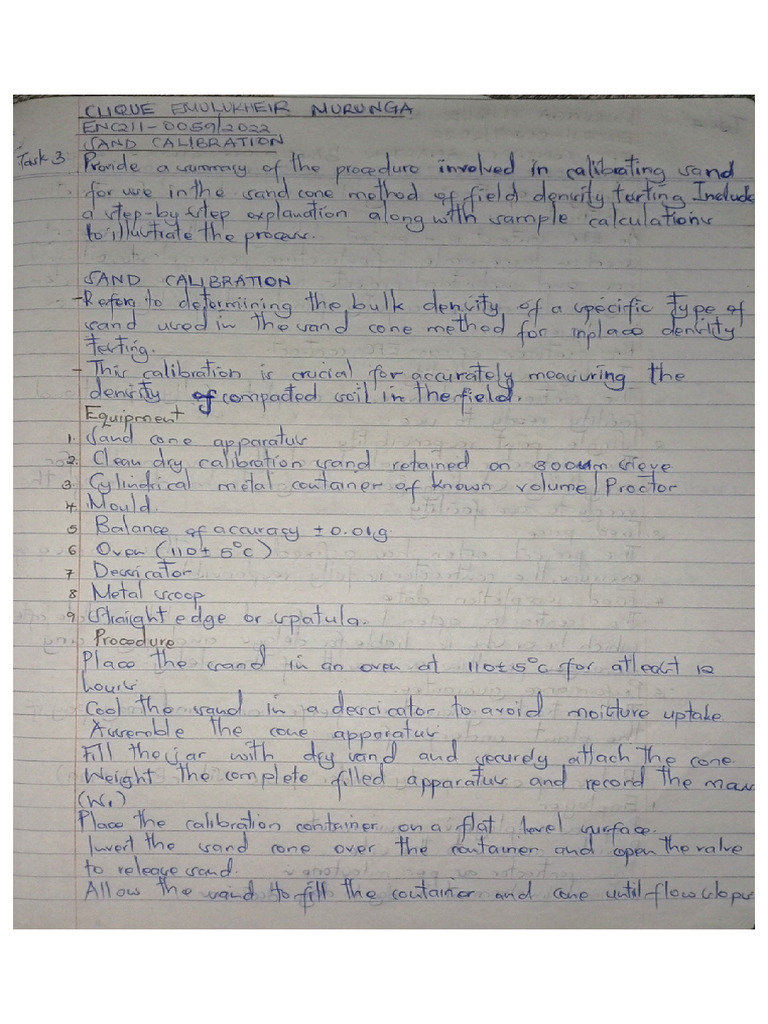 CLIQUE EMULUKHEIR MURUNGA
ENC211-0059/2022
SAND CALIBRATION
Task 3 Provide a summary of the procedure involved in calibrating sand
for use in the sand cone method of field density testing. Include
a step-by step explanation along with sample calculations
to illustrate the process.
SAND CALIBRATION
- Refers to determining the bulk density of a specific type of
sand used in the sand cone method for inplace density
testing.
- This calibration is crucial for accurately measuring the
density of compacted soil in the field.
Equipment
1. Sand cone apparatus
2. Clean dry calibration sand retained on 300um sieve
3. Cylindrical metal container of known volume/Proctor
4. Mould.
5 Balance of accuracy ± 0.01g.
6 Oven (110± 5°C)
7 Dessicator
8 Metal scoop
9 Straight edge or spatula.
Procedure
Place the sand in an oven at 110±5°C for atleast 12
hours
Cool the sand in a dessicator to avoid moisture uptake
Assemble the cone apparatus
Fill the jar with dry sand and securely attach the cone.
Weight the complete filled apparatus and record the mass
(W₁)
Place the calibration container on a flat level surface.
Invert the sand cone over the container and open the valve
to release sand.
Allow the sand to fill the container and cone until flow stops